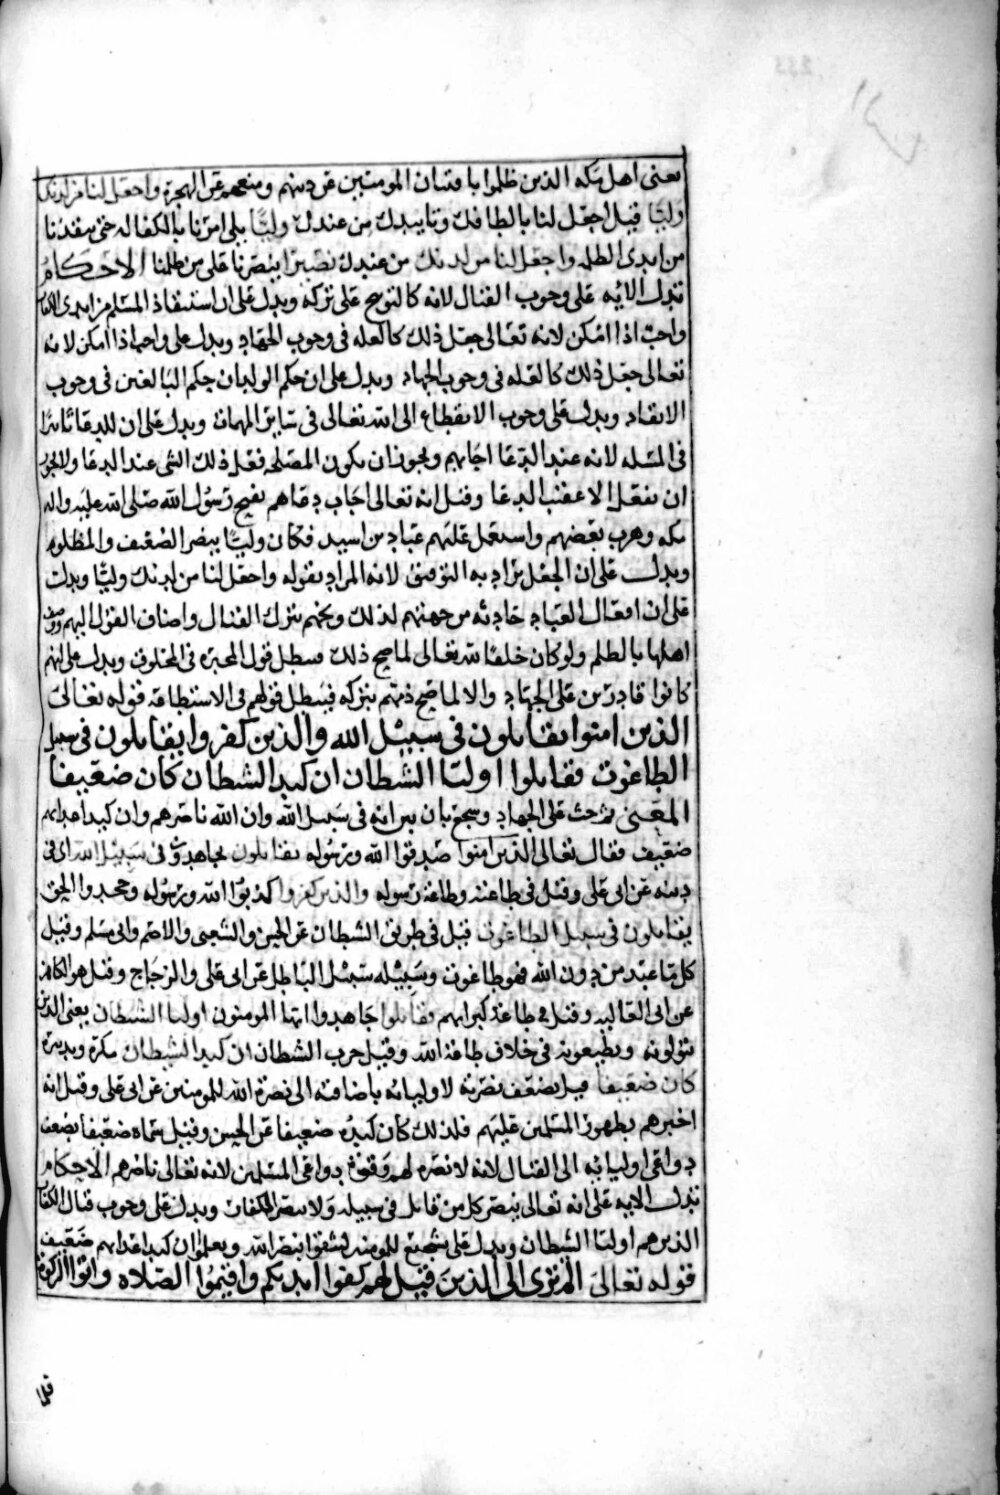 يعني اهل مكه الذين ظلموا بافتتان المومنين عن دينهم ومنعهم عن الهجرة واجعل لنا من لدنك
وليّا قيل اجعل لنا بالطافك وتاييدك من عندك وليّا يلي امرنا بالكفاله حتى ينقذنا
من ايدي الظلمه واجعل لنا من لدنك من عندك نصيرا ينصرنا على من ظلمنا الاحكام
تدل الايه على وجوب القتال لانه كالتوبيخ على تركه ويدل على ان استنقاذ المسلم من ايدي الكفار
واجب اذا امكن لانه تعالى جعل ذلك كالعله في وجوب الجهاد ويدل على واحد اذا امكن لانه
تعالى جعل ذلك كالعله في وجوب الجهاد ويدل على ان حكم الولدان حكم البالغين في وجوب
الانقاذ ويدل على وجوب الانقطاع الى الله تعالى في ساير المهمات ويدل على ان للدعا تاثيرا
في المسله لانه عند الدعا اجابهم ويجوز ان يكون المصلحه فعل ذلك الشي عند الدعا ولا يجوز
ان يفعل الا عقيب الدعا وقيل انه تعالى اجاب دعاهم بفتح رسول الله صلى الله عليه واله
مكه وهرب بعضهم واستعمل عليهم عتاب بن اسيد فكان وليّا ينصر الضعيف والمظلوم
ويدل على ان الجعل يراد به التوفيق لانه المراد بقوله واجعل لنا من لدنك وليّا ويدل
على ان افعال العباد حادثه من جهتهم لذلك وبخهم بترك القتال واضاف القول اليهم ووصف
اهلها بالظلم ولو كان خلقا لله تعالى لما صح ذلك فيبطل قول المجبره في المخلوق ويدل على انهم
كانوا قادرين على الجهاد والا لما صح ذمهم بتركه فيبطل قولهم في الاستطاعه قوله تعالى
الذين امنوا يقاتلون في سبيل الله والذين كفروا يقاتلون في سبيل
الطاغوت فقاتلوا اوليا الشيطان ان كيد الشيطان كان ضعيفا
المعنى ثم حث على الجهاد وشجع بان بين انه في سبيل الله وان الله ناصرهم وان كيد اعدايهم
ضعيف فقال تعالى الذين امنوا صدقوا الله ورسوله يقاتلون يجاهدون في سبيل الله اي في
دينه عن ابي علي وقيل في طاعته وطاعة رسوله والذين كفروا كذبوا الله ورسوله وجحدوا الحق
يقاتلون في سبيل الطاغوت قيل في طريق الشيطان عن الحسن والشعبي والاصم وابي مسلم وقيل
كل ما عبد من دون الله فهو طاغوت وسبيله سبيل الباطل عن ابي علي والزجاج وقيل هو الكاهن
عن ابي العاليه وقيل في طاعة كبرايهم فقاتلوا جاهدوا ايها المومنون اوليا الشيطان يعني الذين
يتولونه ويطيعونه في خلاف طاعة الله وقيل حرب الشيطان ان كيد الشيطان مكره وتدبيره
كان ضعيفا قيل بضعف نصرته لاوليائه باضافته الى نصرة الله للمومنين عن ابي علي وقيل انه
اخبرهم بظهور المسلمين عليهم فلذلك كان كيده ضعيفا عن الحسن وقيل سماه ضعيفا لضعف
دواعي اوليائه الى القتال لانه لا نصره لهم وقوة دواعي المسلمين لانه تعالى ناصرهم الاحكام
تدل الايه على انه تعالى ينصر كل من قاتل في سبيله ولا ينصر الكفار ويدل على وجوب قتال الكفار
الذين هم اوليا الشيطان ويدل على تشجيع للمومنين ليثقوا بنصر الله ويعلموا ان كيد اعدايهم ضعيف
قوله تعالى الم تر الى الذين قيل لهم كفوا ايديكم واقيموا الصلاه واتوا الزكوة
فلما